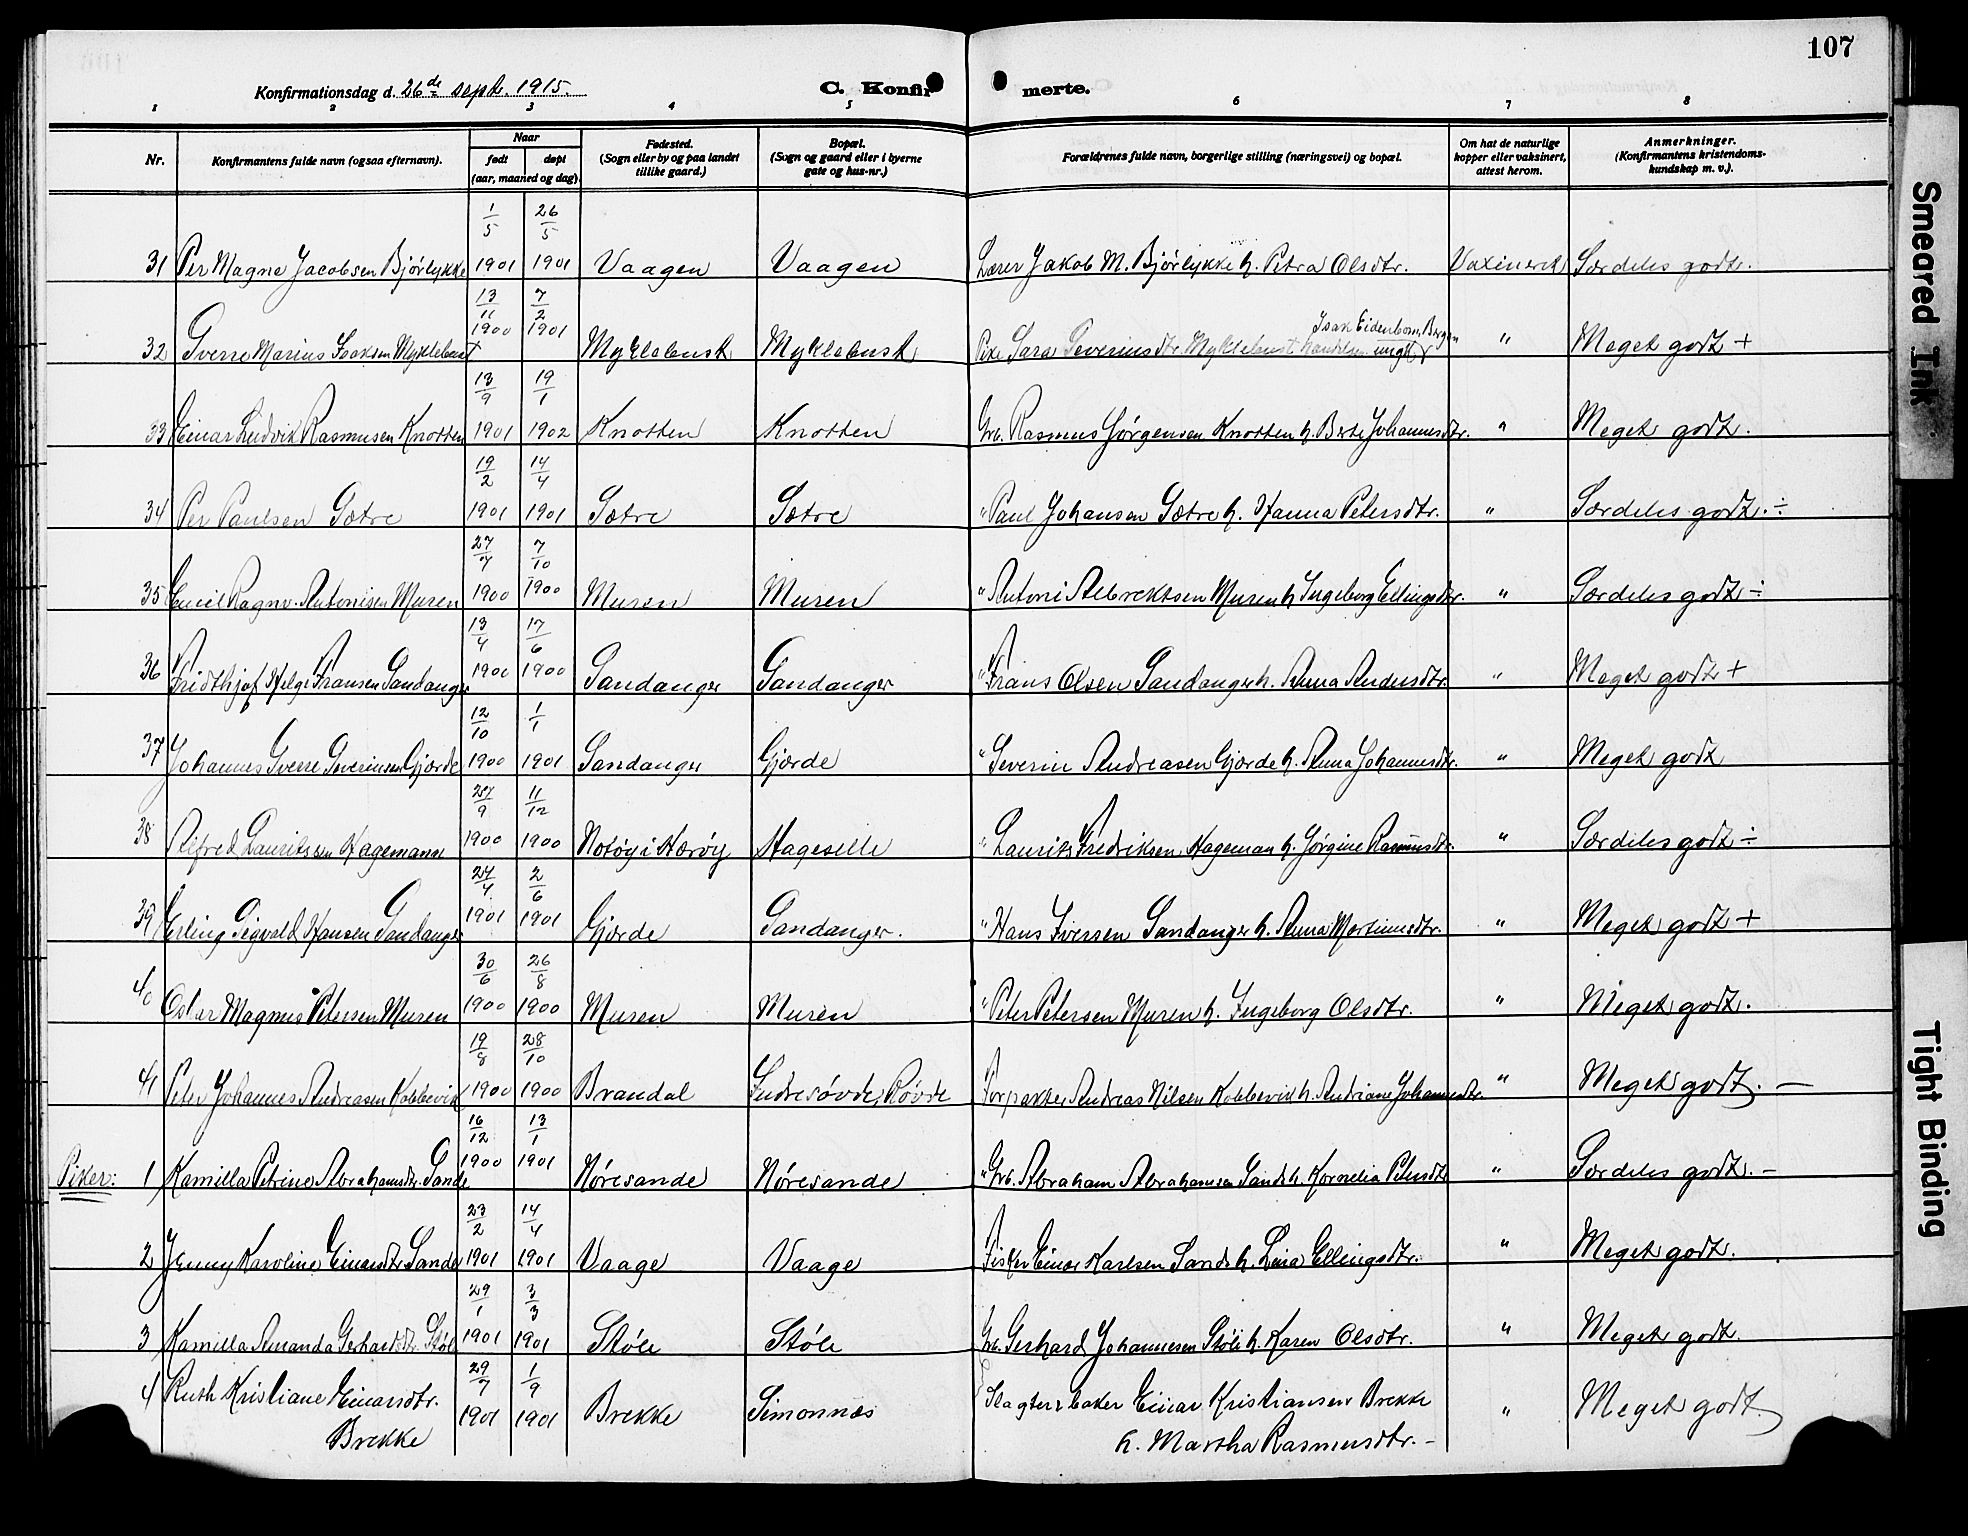 107
Konfirmationsdag d. 26de septr. 1915.
C. Konfirmerte.
1 2 3 4 5 6 7 8
Nr.
Konfirmantens fulde navn (ogsaa efternavn).
Naar
født døpt
(aar, maaned og dag)
Fødested.
(Sogn eller by og paa landet
tillike gaard.)
Bopæl.
(Sogn og gaard eller i byerne
gate og hus-nr.)
Forældrenes fulde navn, borgerlige stilling (næringsvei) og bopæl.
Om hat de naturlige
kopper eller vaksinert,
attest herom.
Anmerkninger.
(Konfirmantens kristendoms-
kundskap m. v.).
31 Per Magne Jacobsen Bjørlykke 1/5 1901 26/5 1901 Vaagen Vaagen Lærer Jakob M. Bjørlykke h. Petra Olsdtr. Vaxineret Særdeles godt.
32 Sverre Marius Isaksen Myklebust 13/11 1900 7/2 1901 Myklebust Myklebust Pike Sara Severinsdtr. Myklebust Isak Eidenbom, Bergen ungk. " Meget godt +
33 Einar Ludvik Rasmusen Knotten 13/9 1901 19/1 1902 Knotten Knotten Grb. Rasmus Jørgensen Knotten h. Berte Johannesdtr. " Meget godt.
34 Per Paulsen Sætre 19/2 1901 14/4 1901 Sætre Sætre " Paul Johansen Sætre h. Hanna Petersdtr. " Særdeles godt. ÷
35 Emil Ragnv. Antonisen Muren 27/7 1900 7/10 1900 Muren Muren " Antoni Albrektsen Muren h Ingeborg Ellingsdtr. " Særdeles godt ÷
36 Fridthjof Helge Fransen Sandanger 13/4 1900 17/6 1900 Sandanger Sandanger " Frans Olsen Sandanger h. Anna Andersdtr. " Meget godt +
37 Johannes Sverre Severinsen Gjærde 12/10 1900 1/1 1901 Sandanger Gjærde " Severin Andreasen Gjærde h. Anna Johannesdtr. " Meget godt
38 Alfred Lauritssen Hagemann 27/9 1900 11/12 1900 Notøy i Hærøy Hageselle " Laurits Fredriksen Hageman h. Jørgine Rasmusdtr. " Særdeles godt ÷
39 Erling Sigvald Hansen Sandanger 24/4 1901 2/6 1901 Gjærde Sandanger. " Hans Iversen Sandanger h. Anna Martinusdtr. " Meget godt +
40 Oskar Magnus Petersen Muren 30/6 1900 26/8 1900 Muren Muren " Peter Petersen Muren h. Ingeborg Olsdtr. " Meget godt.
41 Peter Johannes Andreasen Kobbevik 19/8 1900 28/10 1900 Brandal Indresøvde, Røvde Forpakter Andreas Nilsen Kobbevik h. Andriane Johannesdtr. " Meget godt. —
Piker:
1 Kamilla Petrine Abrahamsdtr. Sande 16/12 1900 13/1 1901 Nøresande Nøresande " Grb. Abraham Abrahamsen Sande h. Kornelia Petersdtr. " Særdeles godt. –
2 Jenny Karoline Einarsdtr Sande 23/2 1901 14/4 1901 Vaage Vaage Fisker Einar Karlsen Sande h. Lina Ellingsdtr. " Meget godt.
3 Kamilla Amanda Gerhardsdtr. Støle 29/1 1901 3/3 1901 Støle Støle Grb. Gerhard Johannesen Støle h. Karen Olsdtr. " Meget godt.
4 Ruth Kristiane Einarsdtr. Brekke 29/7 1901 1/9 1901 Brekke Simonnæs Slagter & baker Einar Kristiansen Brekke h. Martha Rasmusdtr. – " Meget godt.
Smeared Ink
Tight Binding